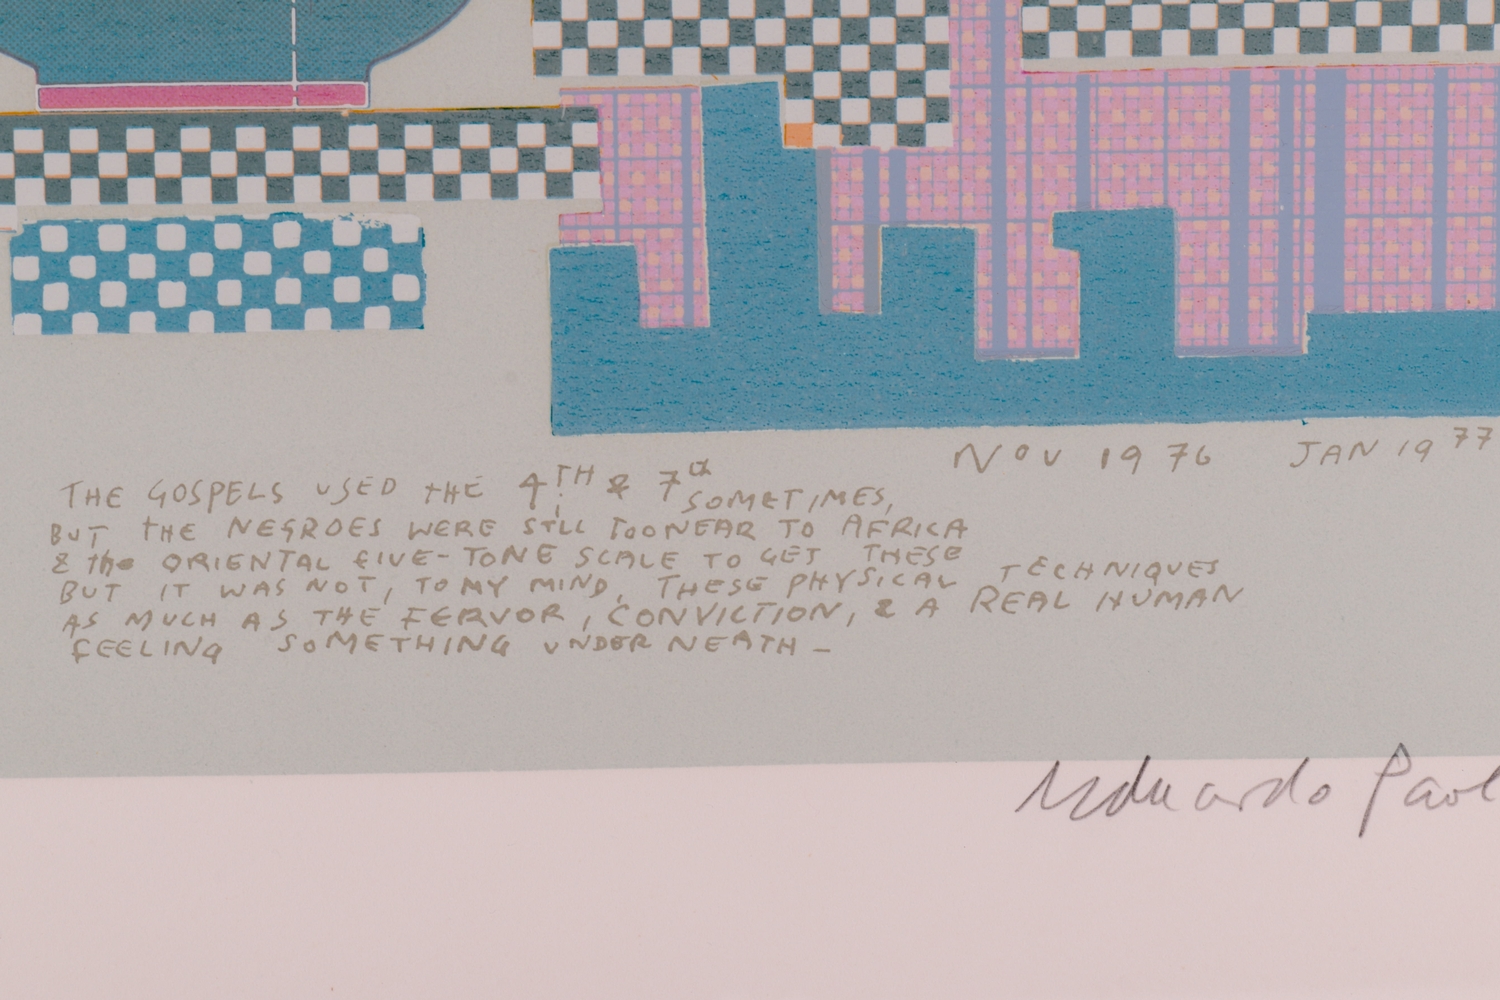 NOV 1976 JAN 1977
THE GOSPELS USED THE 4TH & 7th SOMETIMES,
BUT THE NEGROES WERE STILL TOO NEAR TO AFRICA
& the ORIENTAL FIVE-TONE SCALE TO GET THESE TECHNIQUES
BUT IT WAS NOT, TO MY MIND, THESE PHYSICAL
AS MUCH AS THE FERVOR, CONVICTION, & A REAL HUMAN
FEELING SOMETHING UNDER NEATH –
Eduardo Paol